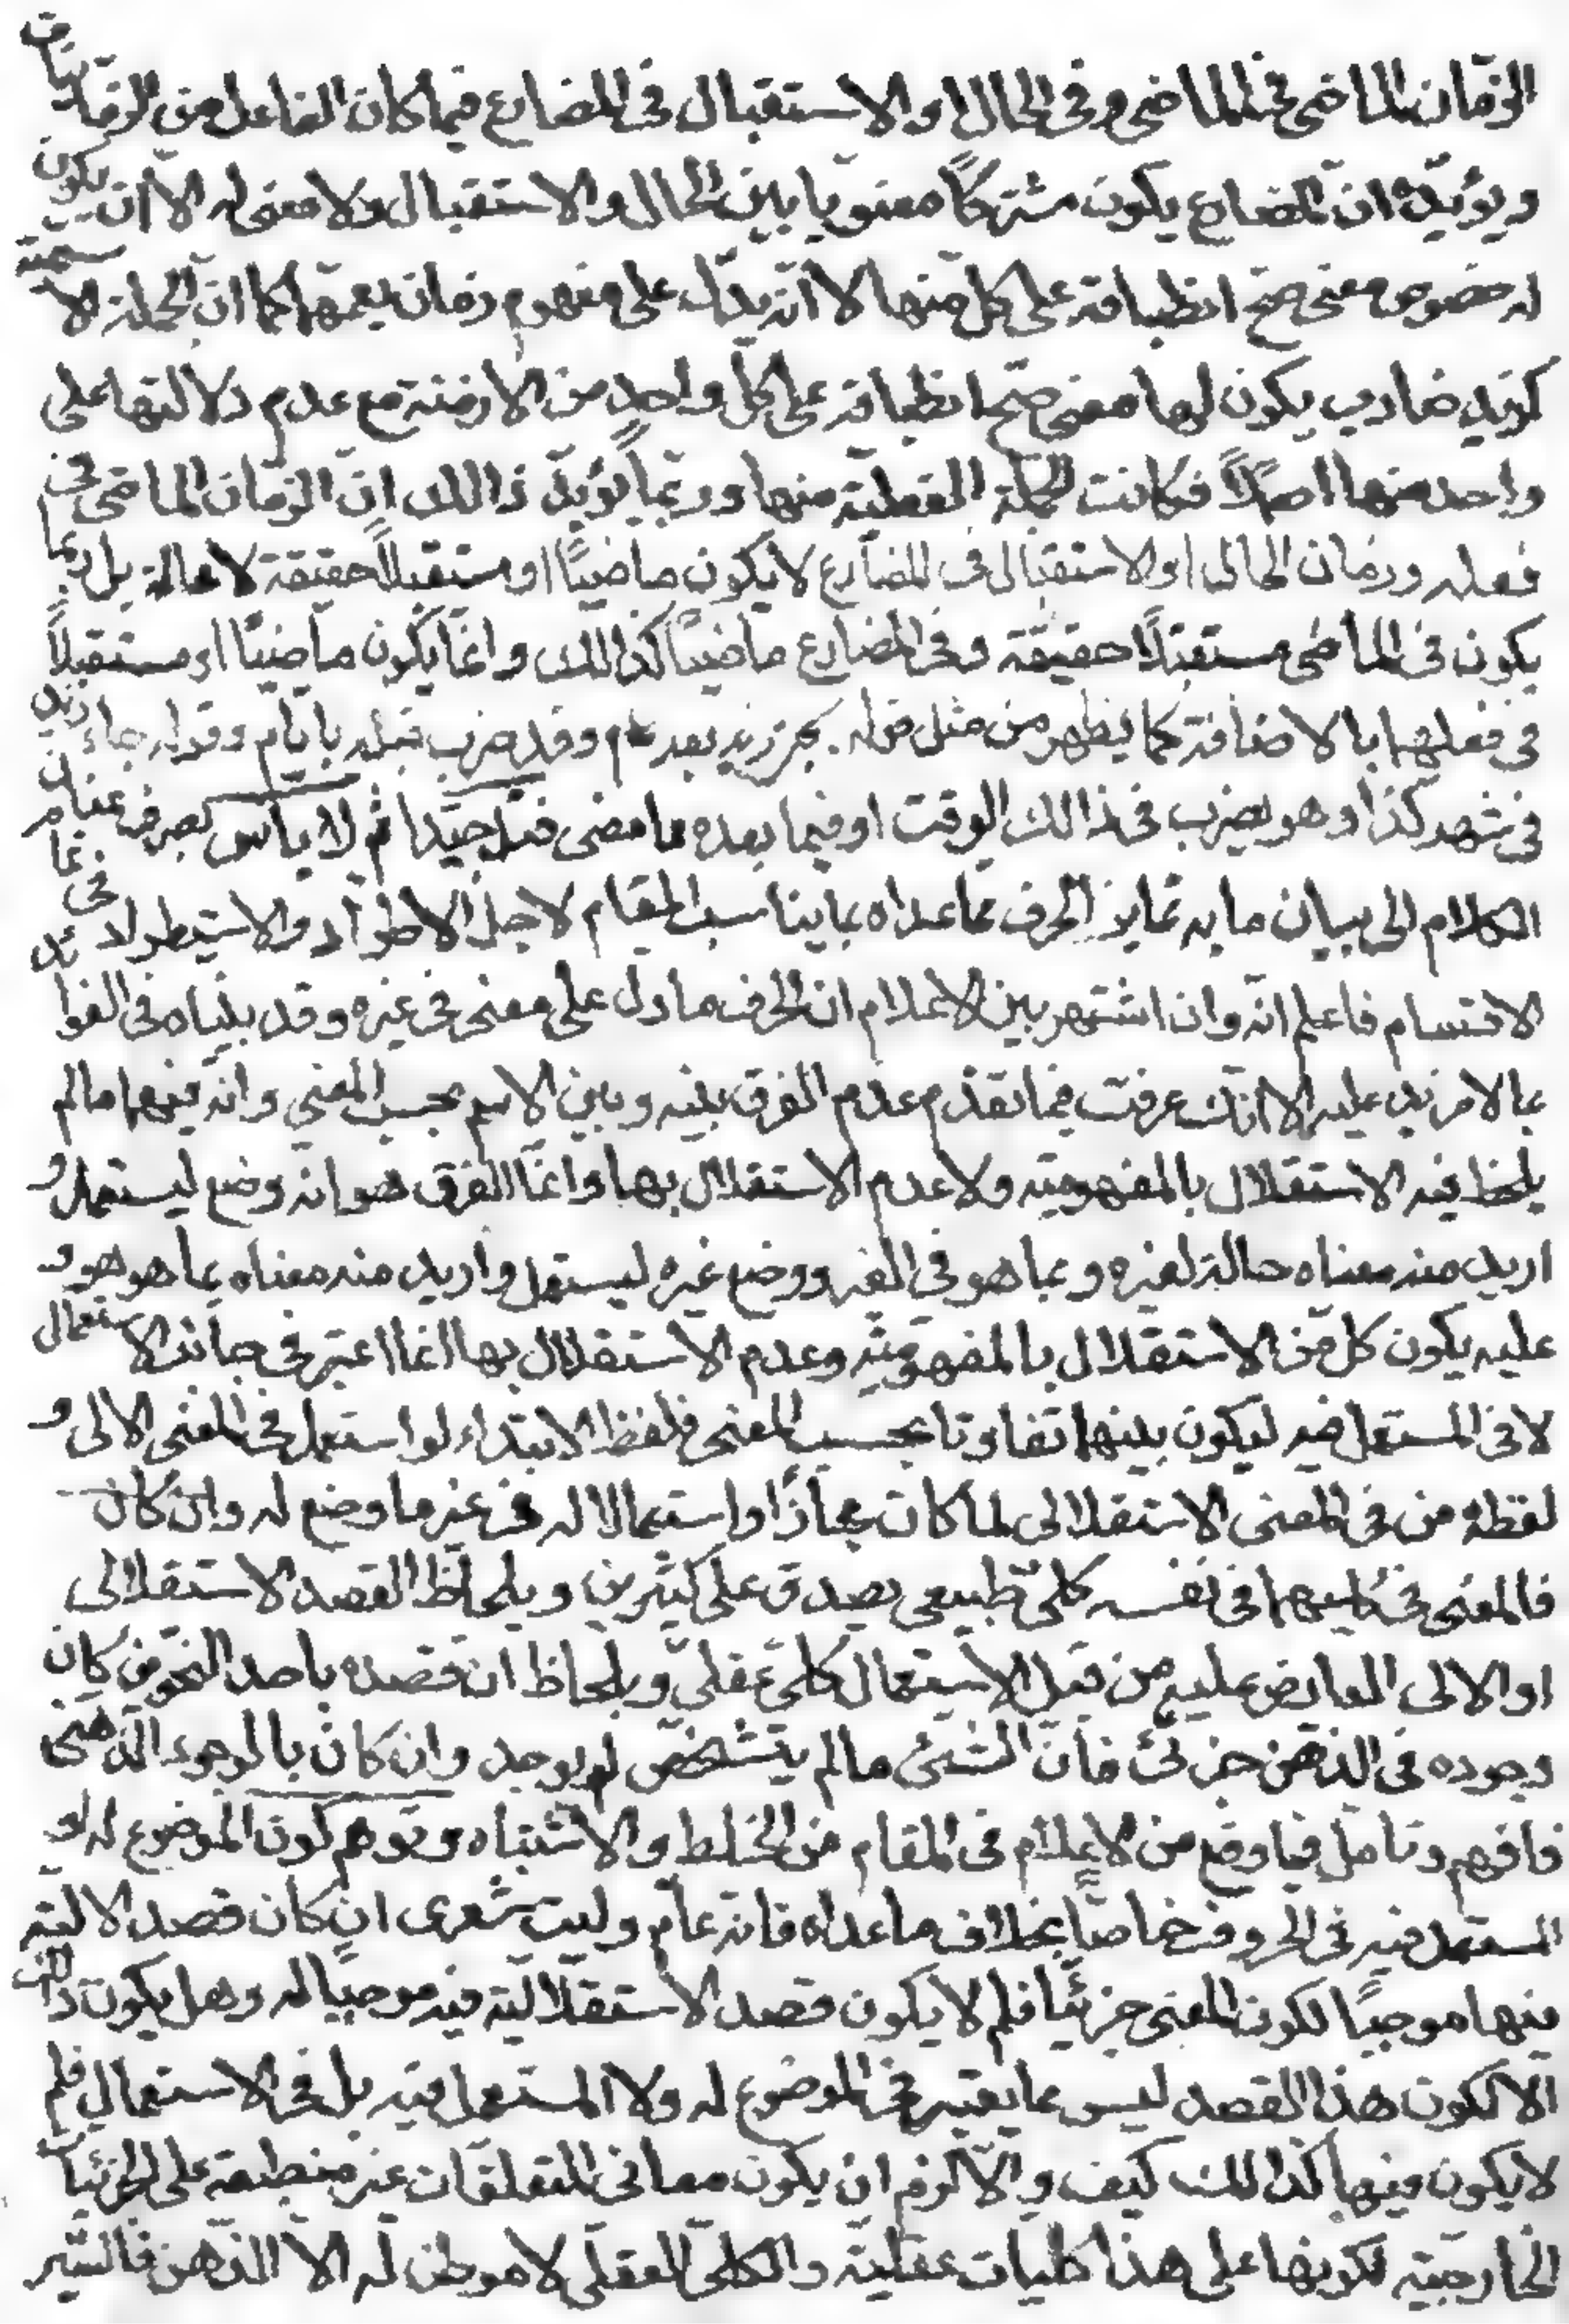 الزمان الماضى فى الماضى وفى الحال او الاستقبال فى المضارع فيما كان الفاعل من الزمانيات
ويؤيده ان المضارع يكون مشتركاً معنويا بين الحال والاستقبال ولا معنى له الا ان يكون
له خصوص معنى صح انطباقه على كل منها لا انه يدل على مفهوم زمان يعمهما كما ان الجملة الاسمية
كزيد ضارب يكون لها معنى صح انطباقه على كل واحدٍ من الازمنة مع عدم دلالتها على
واحد منها اصلاً فكانت الجملة الفعلية منها وربما يؤيّد ذالك انّ الزمان الماضى فى
فعله وزمان الحال او الاستقبال فى المضارع لا يكون ماضيًا او مستقبلاً حقيقة لا محالة بل ربما
يكون فى الماضى مستقبلاً حقيقة وفى المضارع ماضيًا كذالك وانما يكون ماضيًا او مستقبلاً
فى فعلهما بالاضافة كما يظهر من مثل قوله يجئ زيد بعد عام وقد ضرب قبله بايّام وقوله جاء زيد
فى شهر كذا وهو يضرب فى ذالك الوقت او فيما بعده مما مضى فتأمل جيّدا ثم لا بأس بصرف عنان
الكلام الى بيان ما به تمايز الحرف عما عداه بما يناسب المقام لاجل الاطراد والاستطراد فى تمام
الاقسام فاعلم انّه وان اشتهر بين الاعلام ان الحرف ما دل على معنى فى غيره وقد بيّناه فى الفوائد
بما لا مزيد عليه الا انك عرفت فيما تقدّم عدم الفرق بينه وبين الاسم بحسب المعنى وانه فيهما ما لم
يلحظ فيه الاستقلال بالمفهوميّة ولا عدم الاستقلال بها وانما الفرق هو انه وضع ليستعمل و
اريد منه معناه حالة لغيره وبما هو فى الغير ووضع غيره ليستعمل واريد منه معناه بما هو هو و
عليه يكون كل من الاستقلال بالمفهوميّة وعدم الاستقلال بها انما اعتبر فى جانب الاستعمال
لا فى المستعمل فيه ليكون بينهما تفاوتا بحسب المعنى فلفظ الابتداء لو استعمل فى المعنى الالى و
لفظة من فى المعنى الاستقلالى لما كان مجازًا واستعمالا له فى غير ما وضع له وان كان
فالمعنى فى كليهما فى نفسه كلىّ طبيعى يصدق على كثيرين وبلحاظ القصد الاستقلالى
او الالى العارض عليه من قبل الاستعمال كلىّ عقلىّ وبلحاظ ان قصده باحد النحوين كان
وجوده فى الذهن جزئى فان الشئ ما لم يتشخّص لم يوجد وان كان بالوجود الذهنى
فافهم وتامّل فيما وقع من الاعلام فى المقام من الخلط والاشتباه وتوهم كون الموضوع له او
المستعمل فيه فى الحروف خاصّاً بخلاف ما عداه فانه عام وليت شعرى ان كان قصد الاليّة
فيها موجبًا لكون المعنى جزئيًا فلم لا يكون قصد الاستقلاليّة فيه موجبا له وهل يكون ذالك
الّا لكون هذا القصد ليس مما يعتبر فى الموضوع له ولا المستعمل فيه بل فى الاستعمال فلم
لا يكون فيها كذالك كيف والّا لزم ان يكون معانى المتعلقات غير منطبقة على الجزئيات
الخارجيّة لكونها على هذا كليات عقليّة والكلى العقلى لا موطن له الا الذهن فالسّير